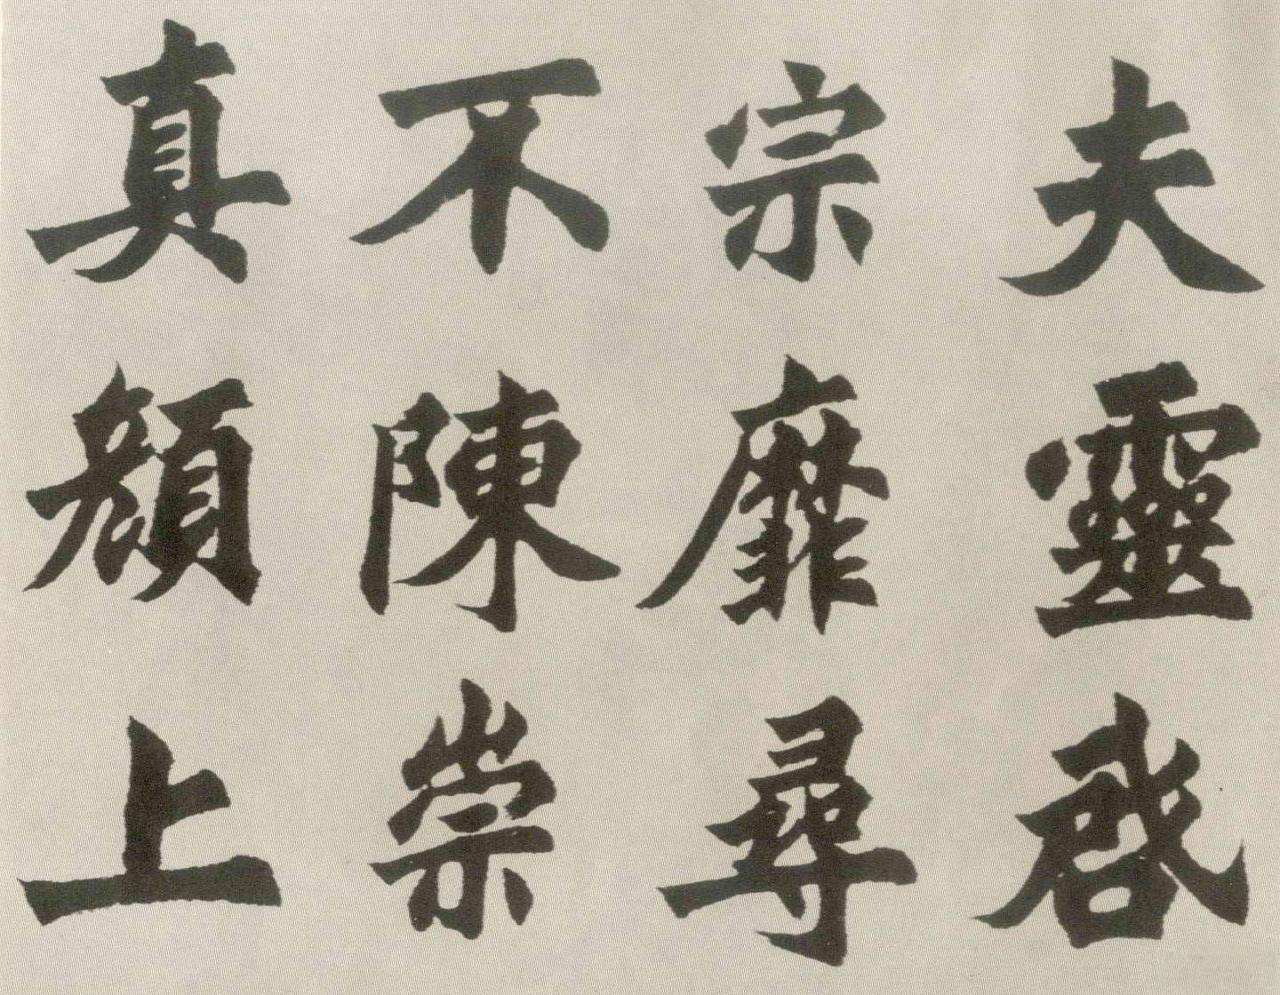 夫靈啓
宗靡尋
不陳崇
真顔上